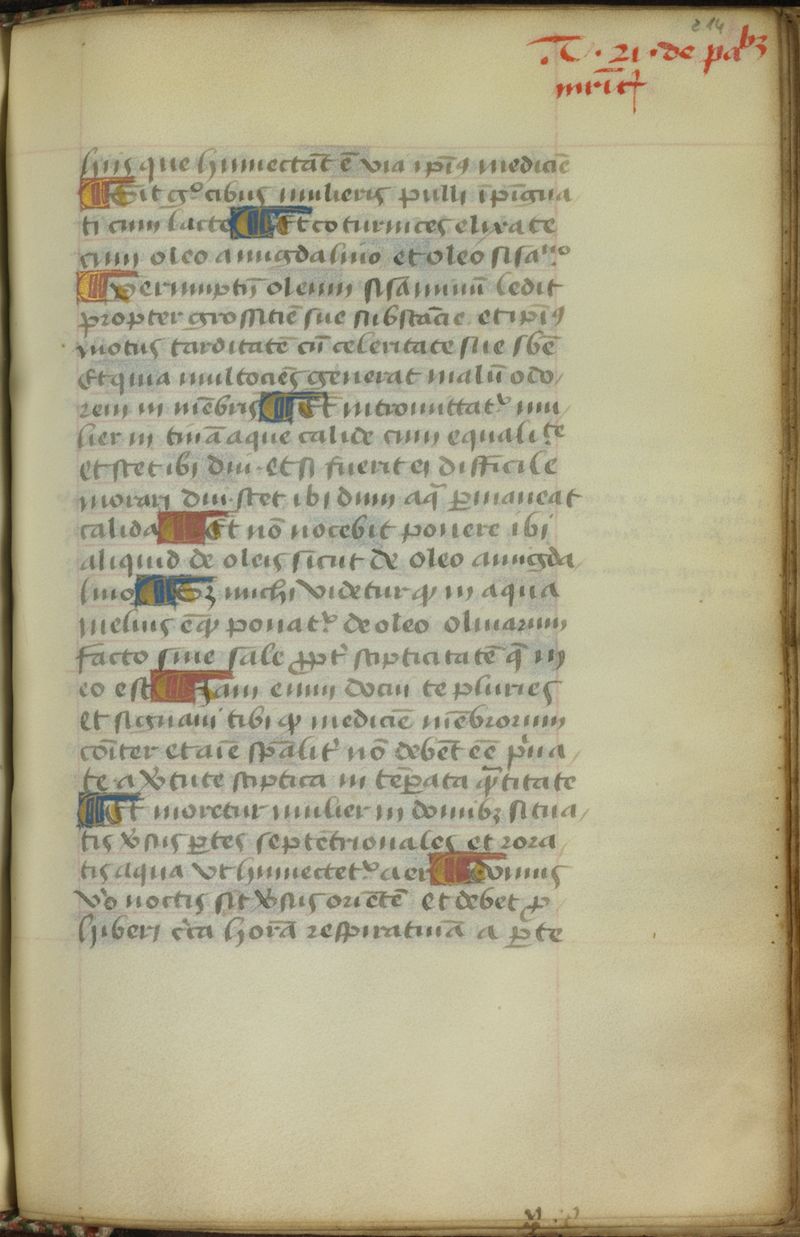 214
T · 21 · de pabꝫ
huiꝰ que humectāt ē via ipīꝰ mediciē
¶ Sit gͦ cibus mulieris pulli īpīgua
ti cum lacte ¶ Et coturnices elixate
cum oleo amigdalino et oleo sisaⁿⁱⁿᵒ
¶ Verumptn̄ oleum sisāminū ledit
propter grossitiē sue substācie et ipīꝰ
motus tarditatē cū celeritate sue sbē
Et quia multociēs generat malū odo/
rem in mēbris ¶ Et intromittatᷣ mu/
lier in tinā aque calide cum equalitᵗᵉ
et stet ibi diu · Et si fuerit ei difficile
morari diu · stet ibi dum aq̄ ꝑmaneat
calida ¶ Et nō nocebit ponere ibi
aliquid de oleis sicut de oleo amigda/
lino ¶ Sꝫ michi videtur ꝙ in aqua
melius ē ꝙ ponatᷣ de oleo olivarum
facto sine sale ꝓptᷣ stipticitatē q̄ in
eo est ¶ Iam enim docui te pluries
et signaui tibi ꝙ mediciē mēbrorum
cōiter et aīe spālitᷣ nō debēt eē pͥua/
te a vͥtute stiptica in tēperata qᷓtitate
¶ Et moretur mulier in domibꝫ situa/
tis vͥsus ꝑtes septētrionales et rora/
tis aqua vt humectetᷣ aer ¶ domus
vͦo noctis sit vͥsus oriētē et debet ꝓ
hiberi cͥca horā respiratiuā a ꝑte